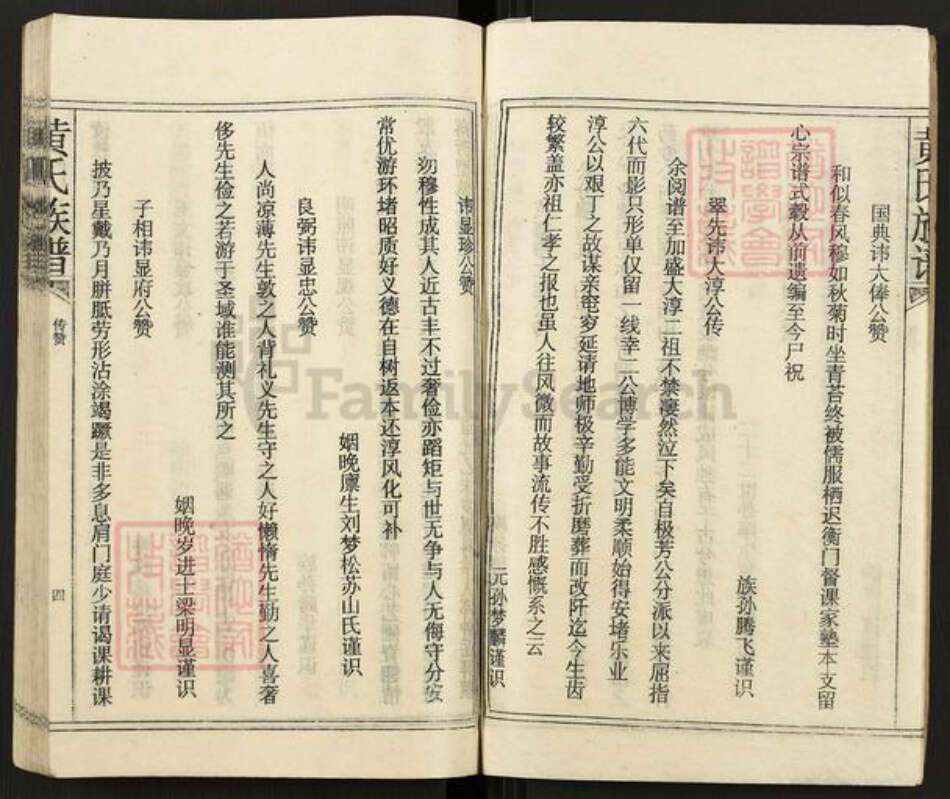 黄氏族谱
国典讳大俸公赞
和似春风穆如秋菊时坐青苔终被儒服栖迟衡门督课家塾本支留
心宗谱式毂从前遗编至今尸祝
族孙腾飞谨识
翠先讳大淳公传
余阅谱至加盛大淳二祖不禁凄然泣下矣自极芳公分派以来屈指
六代而影只形单仅留一线幸二公博学多能文明柔顺始得安堵乐业
淳公以艰丁之故谋亲窀穸延请地师极辛勤受折磨葬而改阡迄今生齿
较繁盖亦祖仁孝之报也虽人往风微而故事流传不胜感慨系之云
元孙梦麟谨识
讳显珍公赞
沕穆性成其人近古丰不过奢俭亦蹈矩与世无争与人无侮守分安
常优游环堵昭质好义德在自树返本还淳风化可补
姻晚廪生刘梦松苏山氏谨识
良弼讳显忠公赞
人尚凉薄先生敦之人背礼义先生守之人好懒惰先生勤之人喜奢
侈先生俭之若游于圣域谁能测其所之
姻晚岁进士梁明显谨识
子相讳显府公赞
披乃星戴乃月胼胝劳形沾涂竭蹶是非多息肩门庭少请谒课耕课
黄氏族谱
传赞
四
FamilySearch